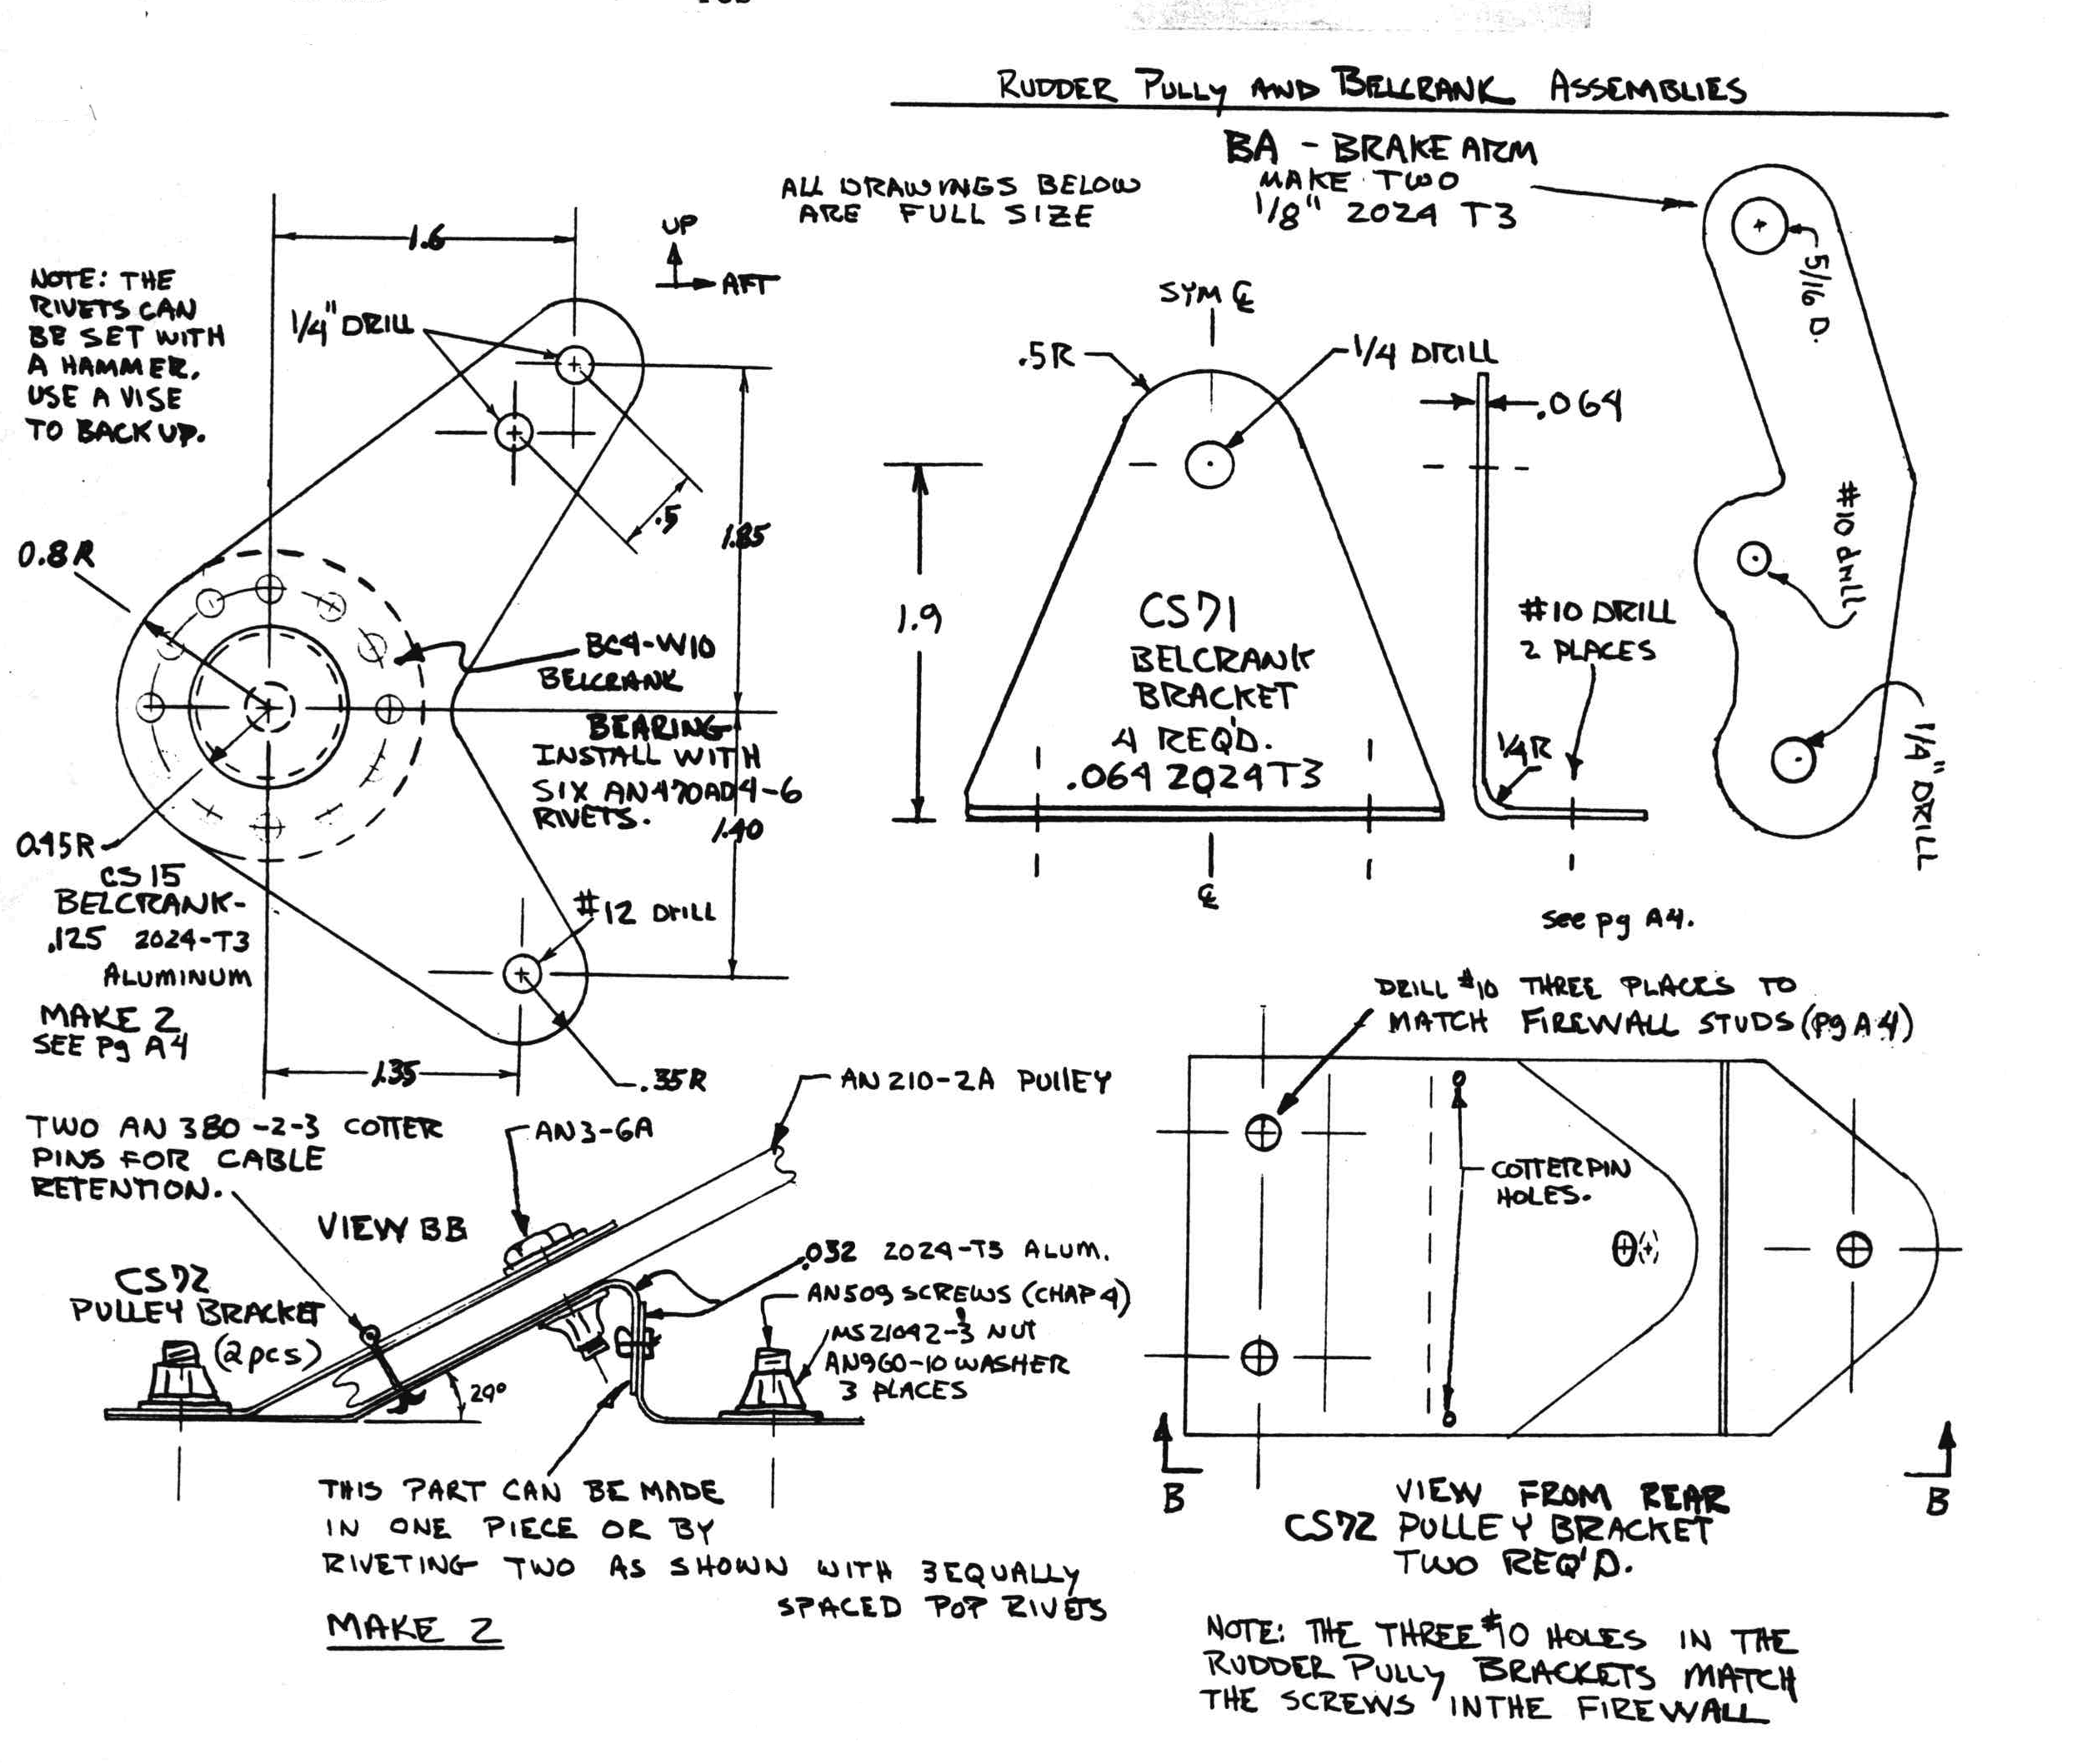 RUDDER PULLY AND BELCRANK ASSEMBLIES
BA - BRAKE ARM
MAKE TWO
1/8" 2024 T3
ALL DRAWINGS BELOW
ARE FULL SIZE
UP
AFT
1.6
NOTE: THE
RIVETS CAN
BE SET WITH
A HAMMER.
USE A VISE
TO BACK UP.
1/4" DRILL
.5
1.85
0.8R
BC4-W10
BELCRANK
BEARING
INSTALL WITH
SIX AN470AD4-6
RIVETS.
1.40
0.45R
CS15
BELCRANK-
.125 2024-T3
ALUMINUM
MAKE 2
SEE Pg A4
#12 DRILL
1.35
.35R
SYM ℄
.5R
1/4 DRILL
1.9
CS71
BELCRANK
BRACKET
4 REQ'D.
.064 2024T3
℄
.064
#10 DRILL
2 PLACES
1/4R
5/16 D.
#10 drill
1/4" DRILL
see pg A4.
TWO AN 380-2-3 COTTER
PINS FOR CABLE
RETENTION.
AN3-6A
AN210-2A PULLEY
VIEW BB
CS72
PULLEY BRACKET
(2pcs)
29°
.032 2024-T3 ALUM.
AN509 SCREWS (CHAP 4)
MS21042-3 NUT
AN960-10 WASHER
3 PLACES
THIS PART CAN BE MADE
IN ONE PIECE OR BY
RIVETING TWO AS SHOWN WITH 3 EQUALLY
SPACED POP RIVETS
MAKE 2
DRILL #10 THREE PLACES TO
MATCH FIREWALL STUDS (Pg A4)
COTTERPIN
HOLES.
B
B
VIEW FROM REAR
CS72 PULLEY BRACKET
TWO REQ'D.
NOTE: THE THREE #10 HOLES IN THE
RUDDER PULLY BRACKETS MATCH
THE SCREWS IN THE FIREWALL